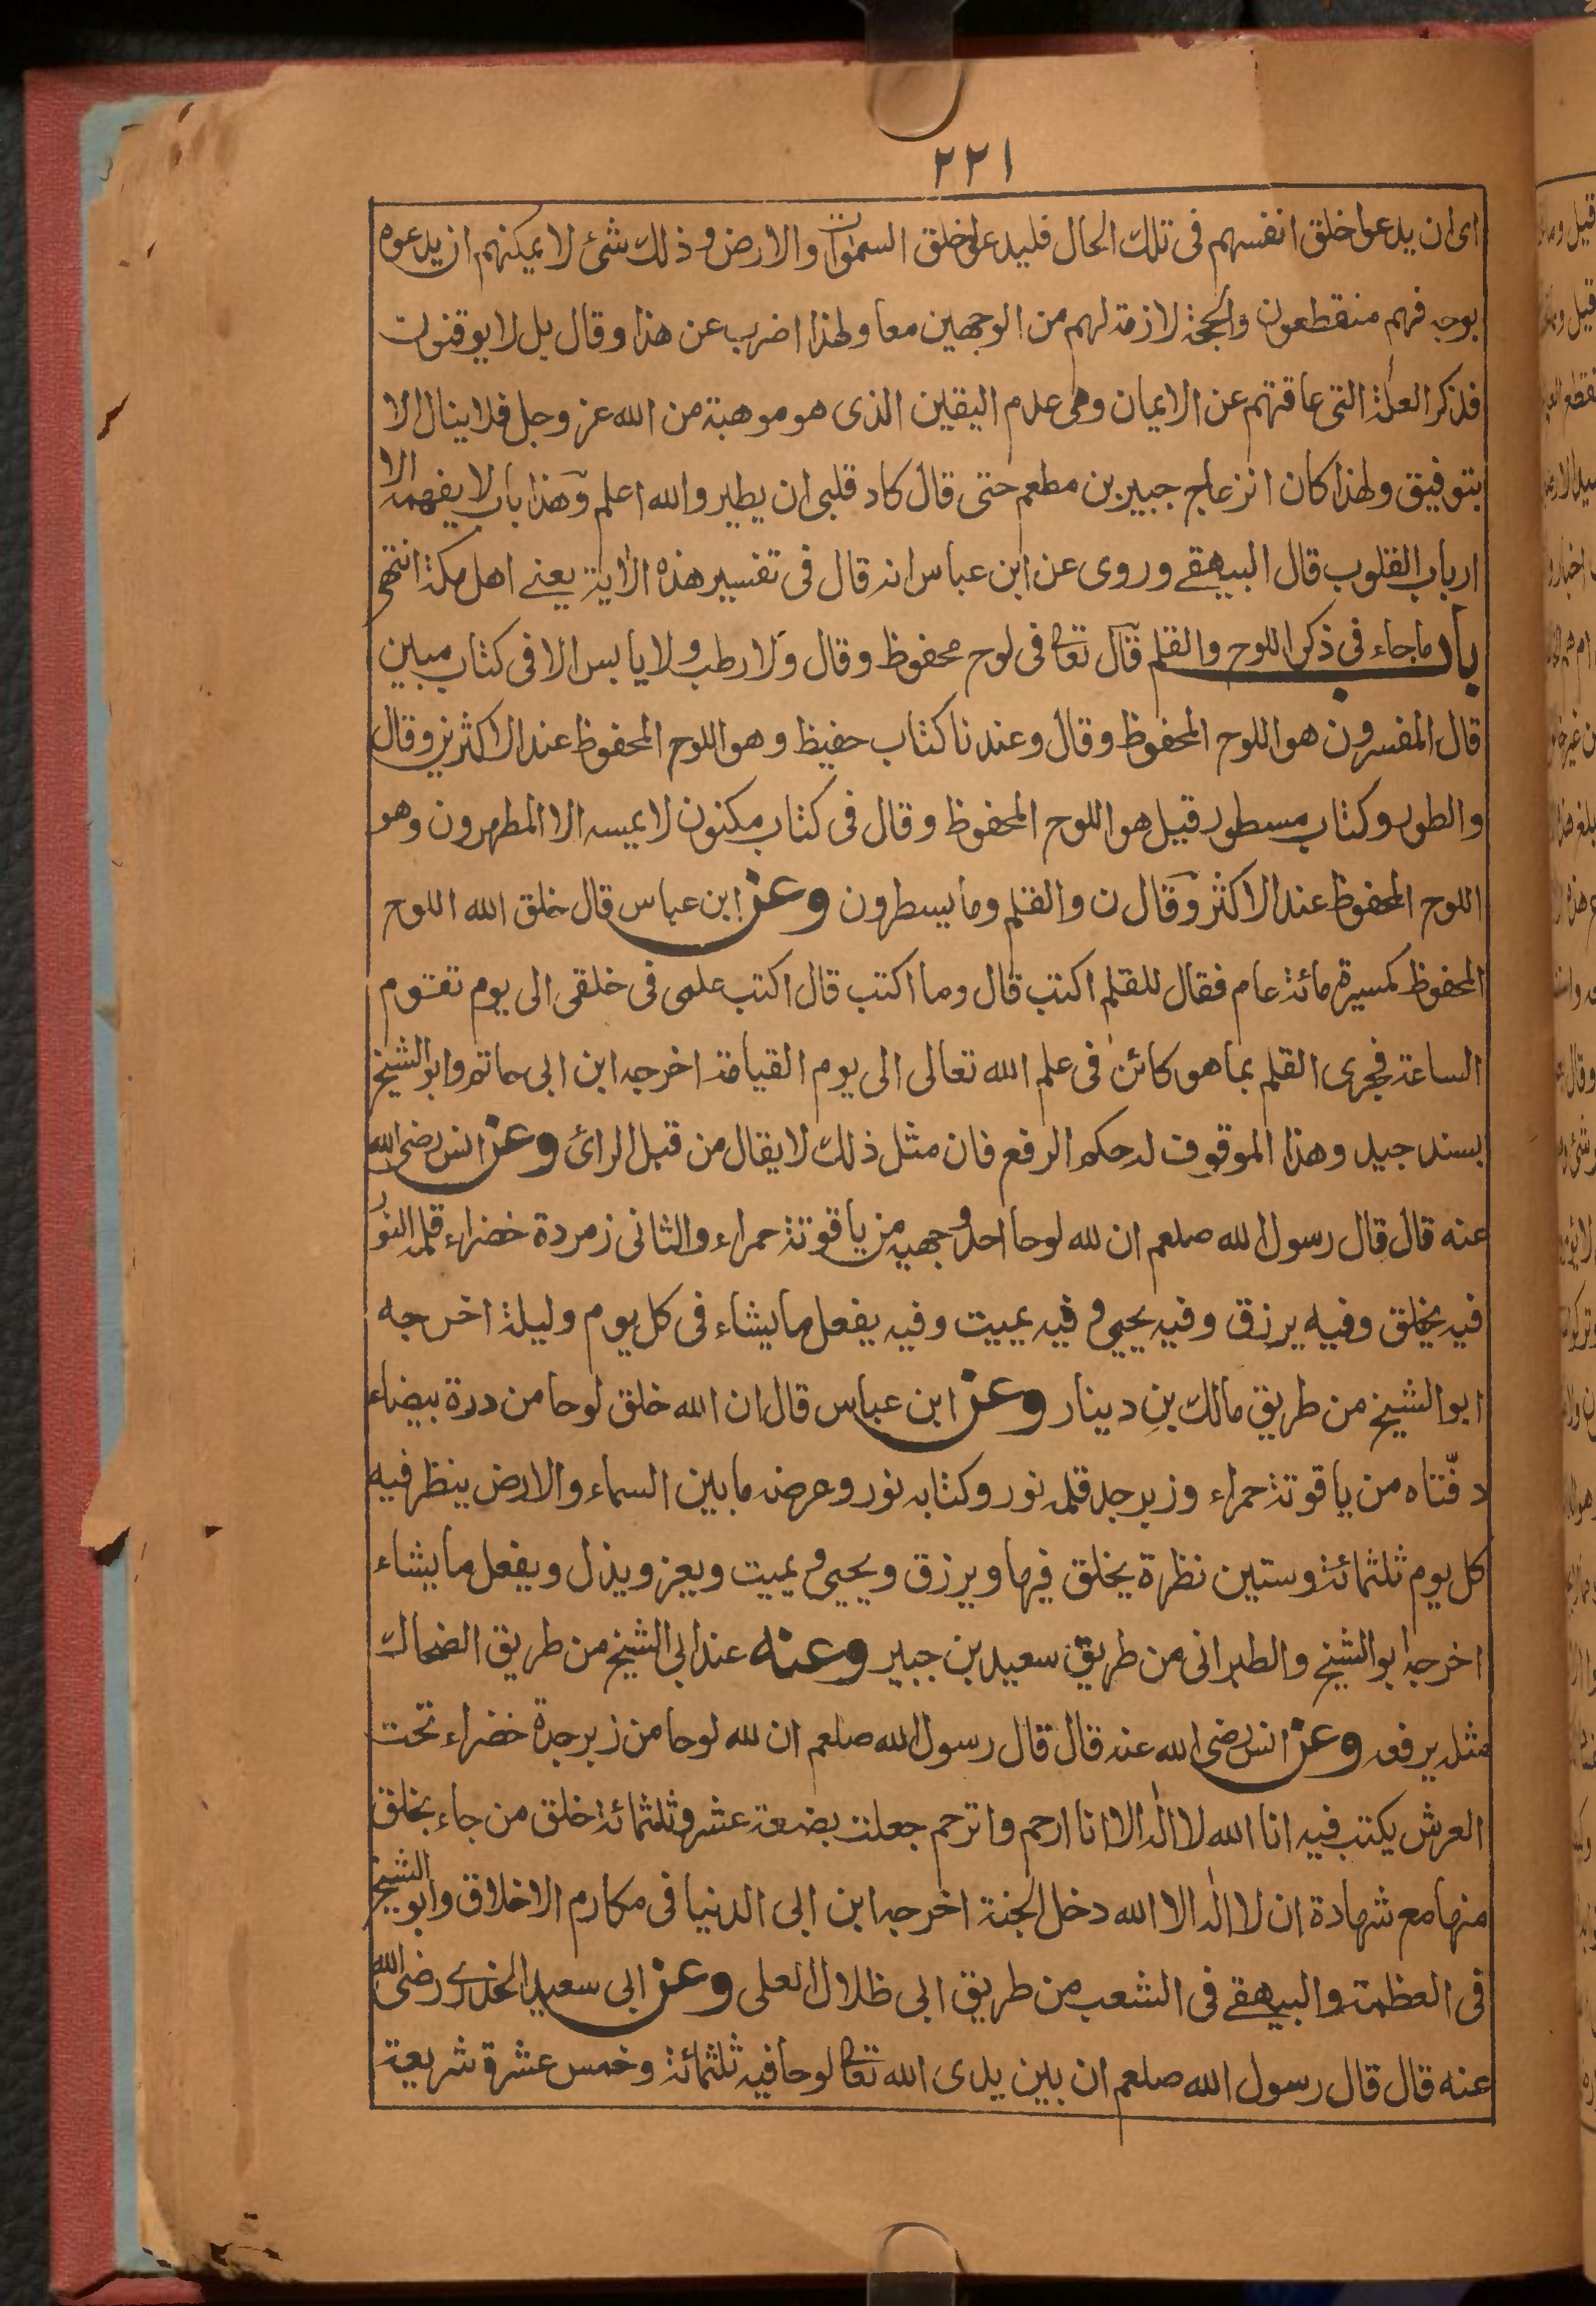 ٢٢١
اى ان يدعوا خلق انفسهم فى تلك الحال فليدعوا خلق السموات والارض وذلك شئ لا يمكنهم ان يدعوه
بوجه فهم منقطعون والحجة لازمة لهم من الوجهين معا ولهذا اضرب عن هذا وقال بل لا يوقنون
فذكر العلة التى عاقتهم عن الايمان وهى عدم اليقين الذى هو موهبة من الله عز وجل فلا ينال الا
بتوفيق ولهذا كان انزعاج جبير بن مطعم حتى قال كاد قلبى ان يطير والله اعلم وهذا باب لا يفهمه الا
ارباب القلوب قال البيهقے وروى عن ابن عباس انه قال فى تفسير هذه الاية يعنے اهل مكة انتهى
باب ما جاء فى ذكر اللوح والقلم قال تعالى فى لوح محفوظ وقال ولا رطب ولا يابس الا فى كتاب مبين
قال المفسرون هو اللوح المحفوظ وقال وعندنا كتاب حفيظ وهو اللوح المحفوظ عند الاكثرين وقال
والطور وكتاب مسطور قيل هو اللوح المحفوظ وقال فى كتاب مكنون لا يمسه الا المطهرون وهو
اللوح المحفوظ عند الاكثر وقال ن والقلم وما يسطرون وعن ابن عباس قال خلق الله اللوح
المحفوظ كمسيرة مائة عام فقال للقلم اكتب قال وما اكتب قال اكتب علمى فى خلقى الى يوم تقوم
الساعة فجرى القلم بما هو كائن فى علم الله تعالى الى يوم القيامة اخرجه ابن ابى حاتم وابو الشيخ
بسند جيد وهذا الموقوف له حكم الرفع فان مثل ذلك لا يقال من قبل الرائ وعن انس رضى الله
عنه قال قال رسول الله صلعم ان لله لوحا احد وجهيه من ياقوتة حمراء والثانى زمردة خضراء قلمه النور
فيه يخلق وفيه يرزق وفيه يحيى و فيه يميت وفيه يفعل ما يشاء فى كل يوم وليلة اخرجه
ابو الشيخ من طريق مالك بن دينار وعن ابن عباس قال ان الله خلق لوحا من درة بيضاء
دفّتاه من ياقوتة حمراء وزبرجد قلمه نور وكتابه نور وعرضه ما بين السماء والارض ينظر فيه
كل يوم ثلثمائة وستين نظرة يخلق فيها ويرزق ويحيى و يميت ويعز ويذل ويفعل ما يشاء
اخرجه ابو الشيخ والطبرانى من طريق سعيد بن جبير وعنه عند ابى الشيخ من طريق الضحاك
مثله يرفعه وعن انس رضى الله عنه قال قال رسول الله صلعم ان لله لوحا من زبرجدة خضراء تحت
العرش يكتب فيه انا الله لا اله الا انا ارحم واترحم جعلت بضعة عشر وثلثمائة خلق من جاء بخلق
منها مع شهادة ان لا اله الا الله دخل الجنة اخرجه ابن ابى الدنيا فى مكارم الاخلاق وابو الشيخ
فى العظمة والبيهقے فى الشعب من طريق ابى ظلال العلى وعن ابى سعيد الخدرے رضى الله
عنه قال قال رسول الله صلعم ان بين يدى الله تعالى لوحا فيه ثلثمائة وخمس عشرة شريعة